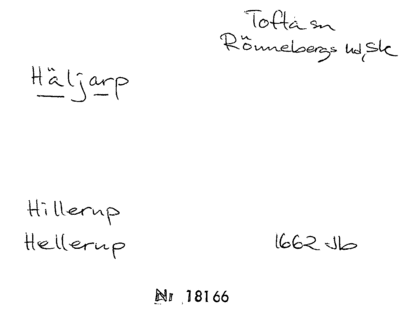 Tofta sn
Rönnebergs hd, Sk
Häljarp
Hillerup
Hellerup 1662 Jb
Nr 18166